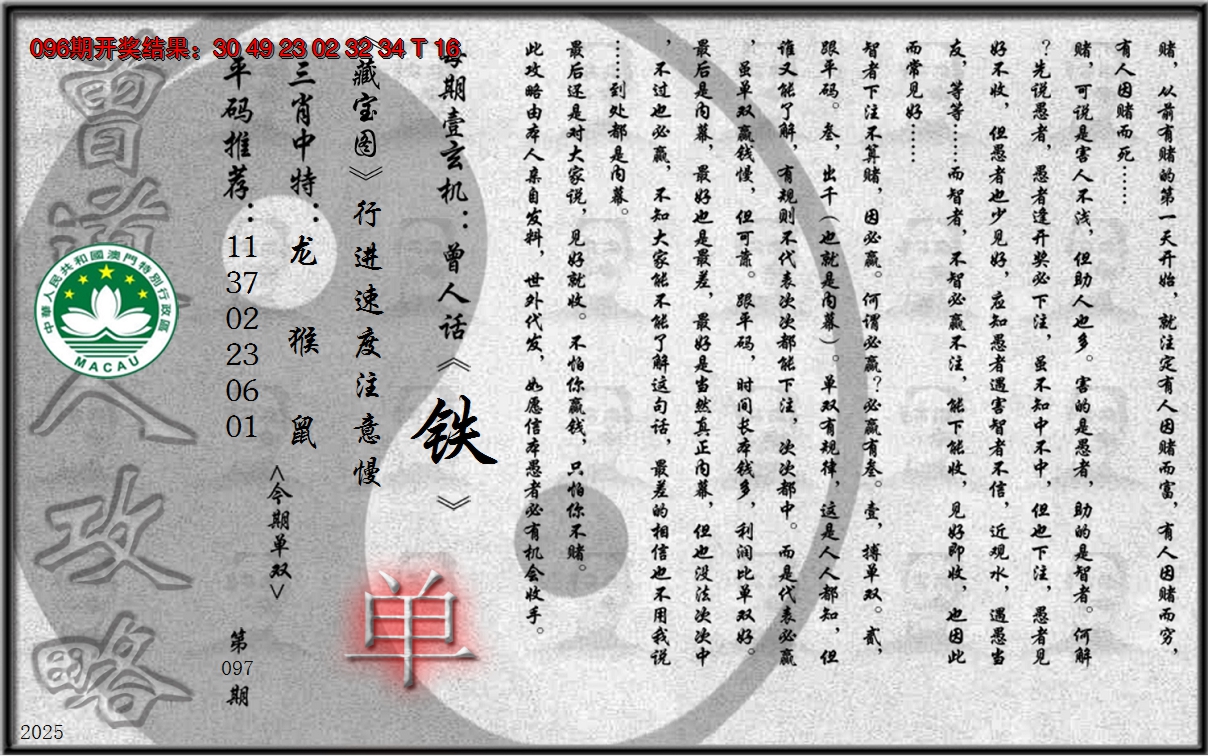 096期开奖结果：30 49 23 02 32 34 T 16
赌，从前有赌的第一天开始，就注定有人因赌而富，有人因赌而穷，
有人因赌而死……
赌，可说是害人不浅，但助人也多。害的是愚者，助的是智者。何解
？先说愚者，愚者逢开奖必下注，虽不知中不中，但也下注，愚者见
好不收，但愚者也少见好，应知愚者遇害智者不信，近观水，遇愚当
友，等等……而智者，不智必赢不注，能下能收，见好即收，也因此
而常见好……
智者下注不算赌，因必赢。何谓必赢？必赢有叁。壹，搏单双。贰，
跟平码。叁，出千（也就是内幕）。单双有规律，这是人人都知，但
谁又能了解，有规则不代表次次都能下注，次次都中。而是代表必赢
，虽单双赢钱慢，但可靠。跟平码，时间长本钱多，利润比单双好。
最后是内幕，最好也是最差，最好是当然真正内幕，但也没法次次中
，不过也必赢，不知大家能不能了解这句话，最差的相信也不用我说
……到处都是内幕。
最后还是对大家说，见好就收。不怕你赢钱，只怕你不赌。
此攻略由本人亲自发料，世外代发，如愿信本愚者必有机会收手。
每期壹玄机：曾人话《铁》
《藏宝图》行进速度注意慢
单
三肖中特：龙 猴 鼠
<今期单双>
平码推荐：11 37 02 23 06 01
第097期
曾道人攻略
中華人民共和國澳門特別行政區
MACAU
2025